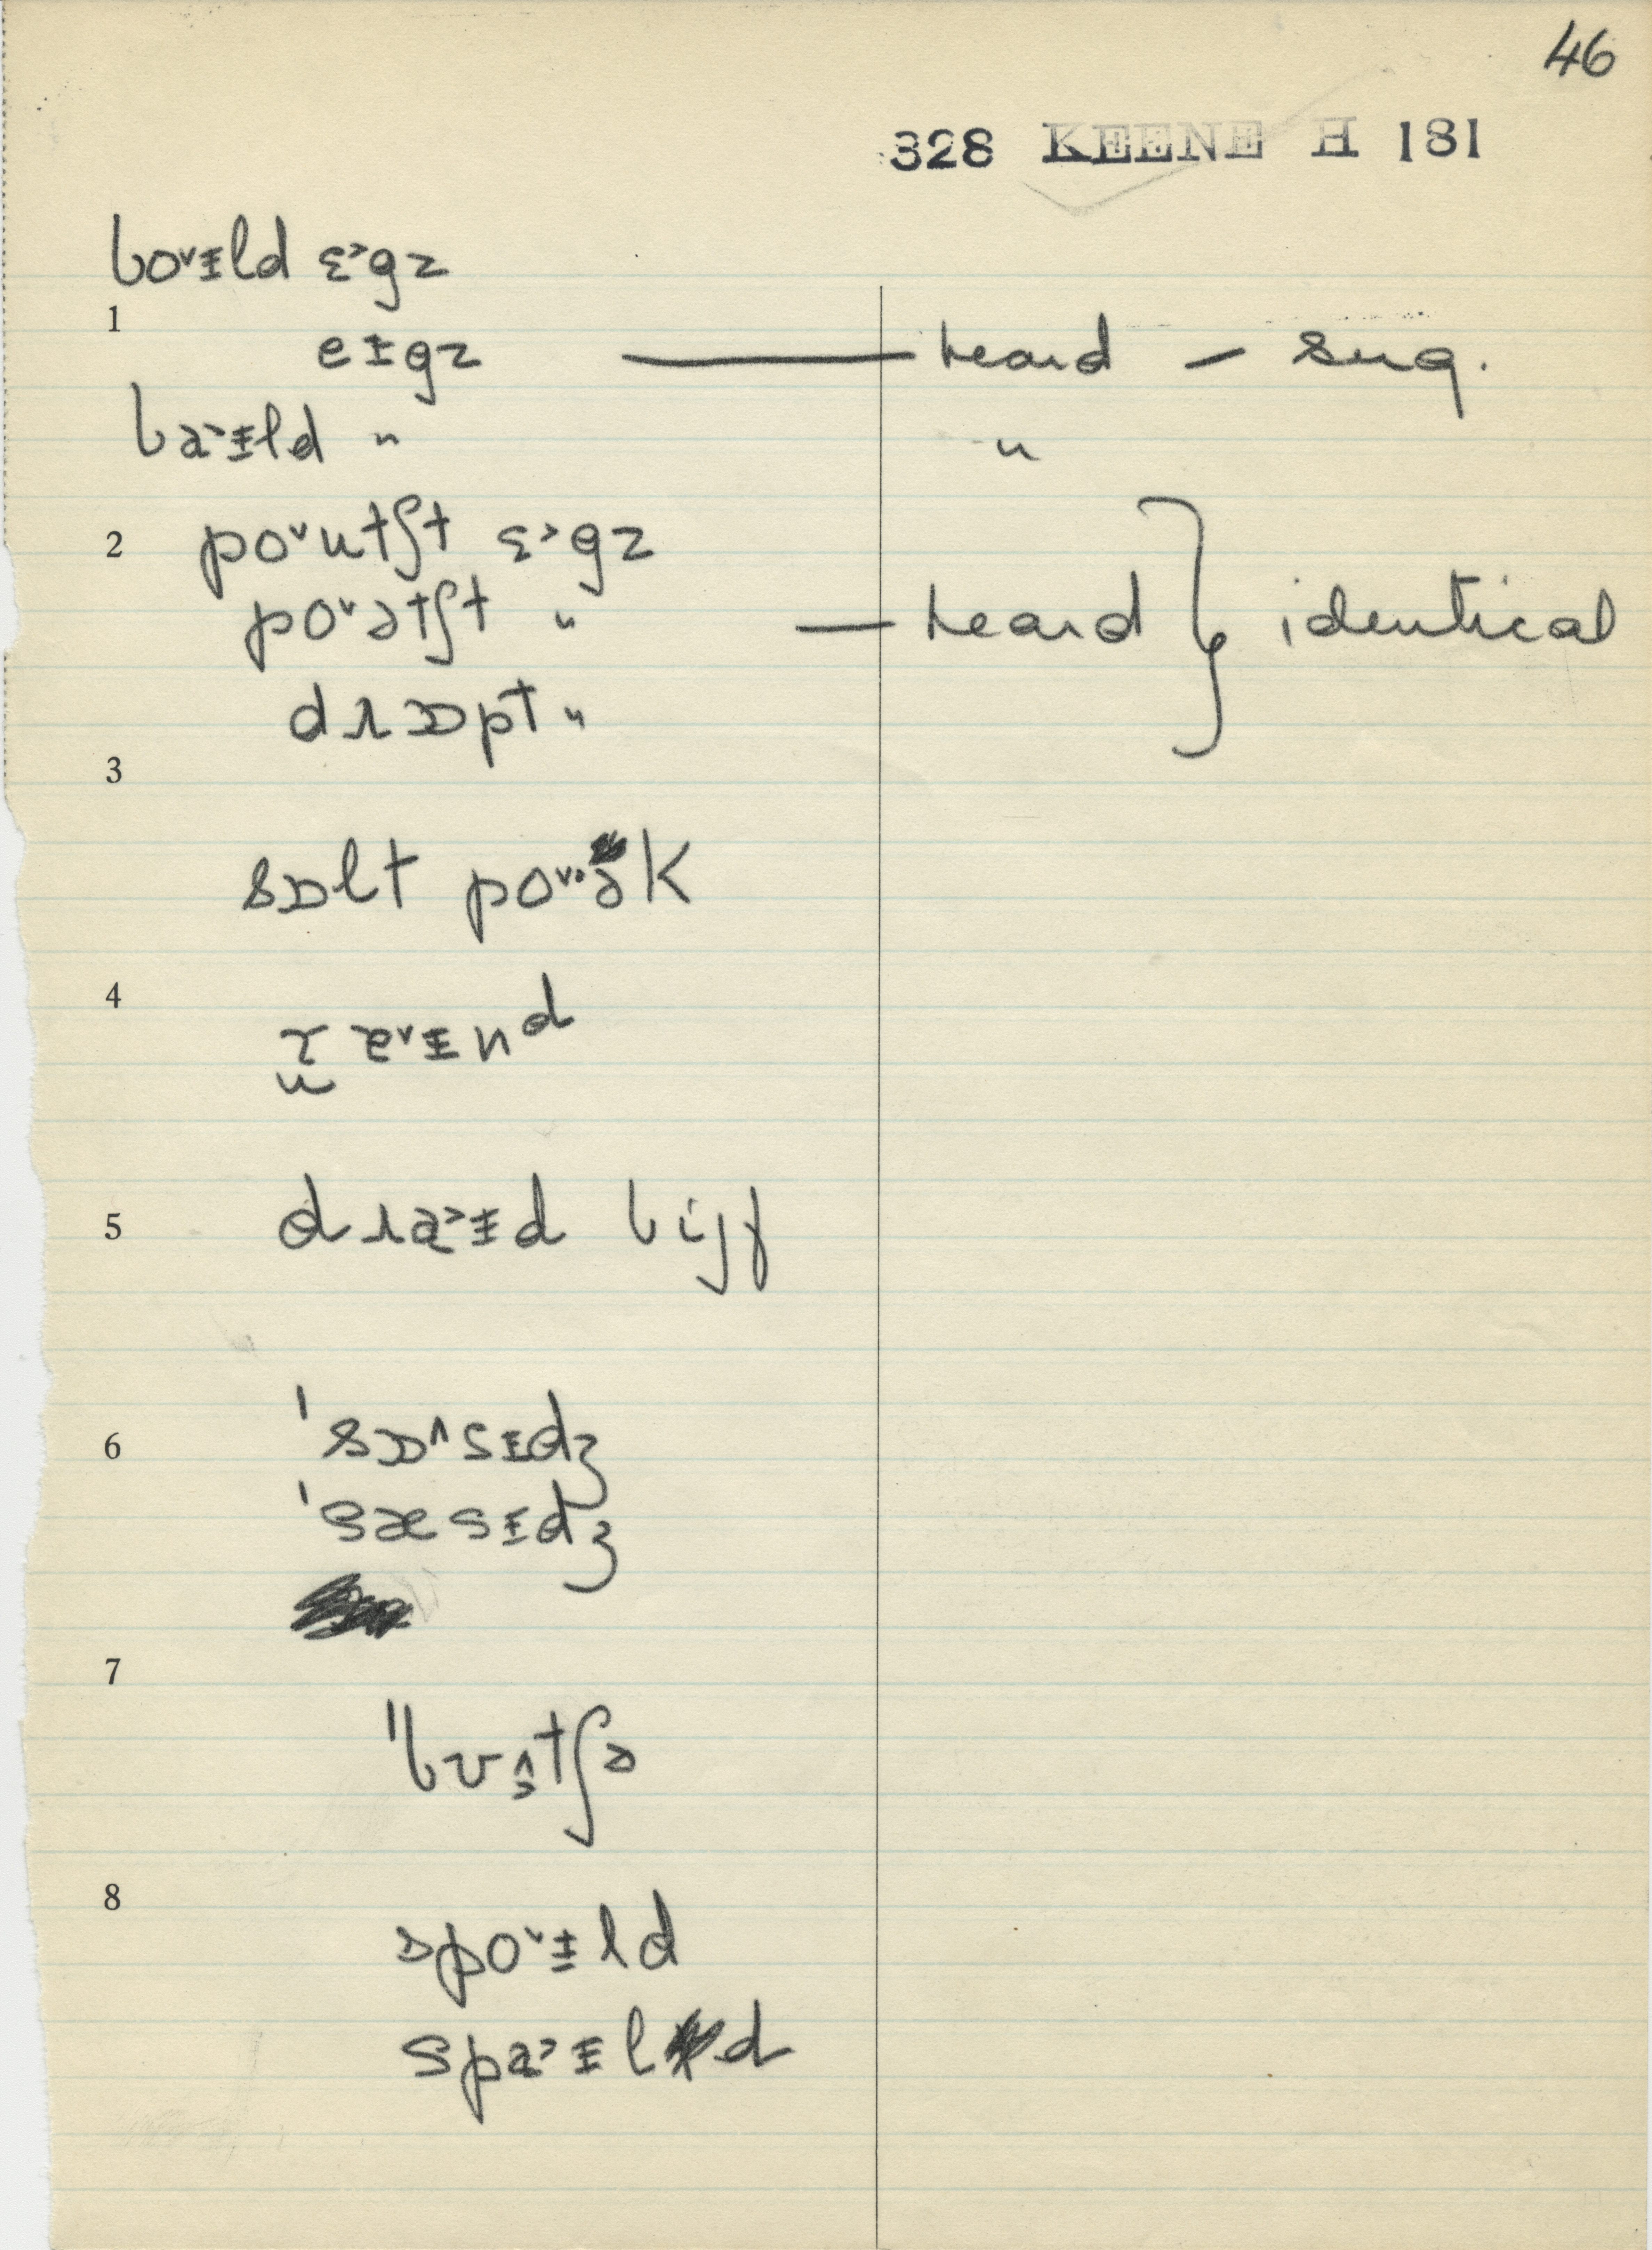 46
328 KEENE H 181
bo˅ɪld ɛ˃gz
1
eɪgz — heard – sug.
ba˃ɪld " "
2 po˅utʃt ɛ˃gz
po˅ətʃt " — heard } identical
dɹɒpt "
3
sɒlt po˅·ək
4
ɐ˅ɪnᵈ
5 dɹa˃ɪd bijf
6 'sɒ˄sɪdʒ
'sæsɪdʒ
7
"bʊtʃə
8
spo˅ɪld
spa˃ɪld